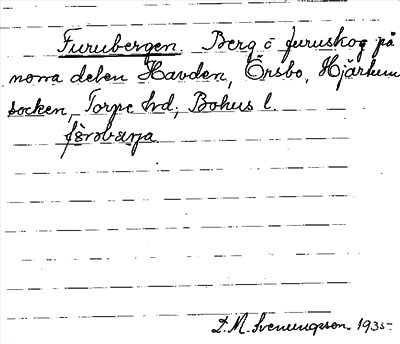 Furubergen. Berg o furuskog på
norra delen Havden, Örsbo, Hjärtum
socken, Torpe hd; Bohus l.
J. M. Svenungsson 1935-